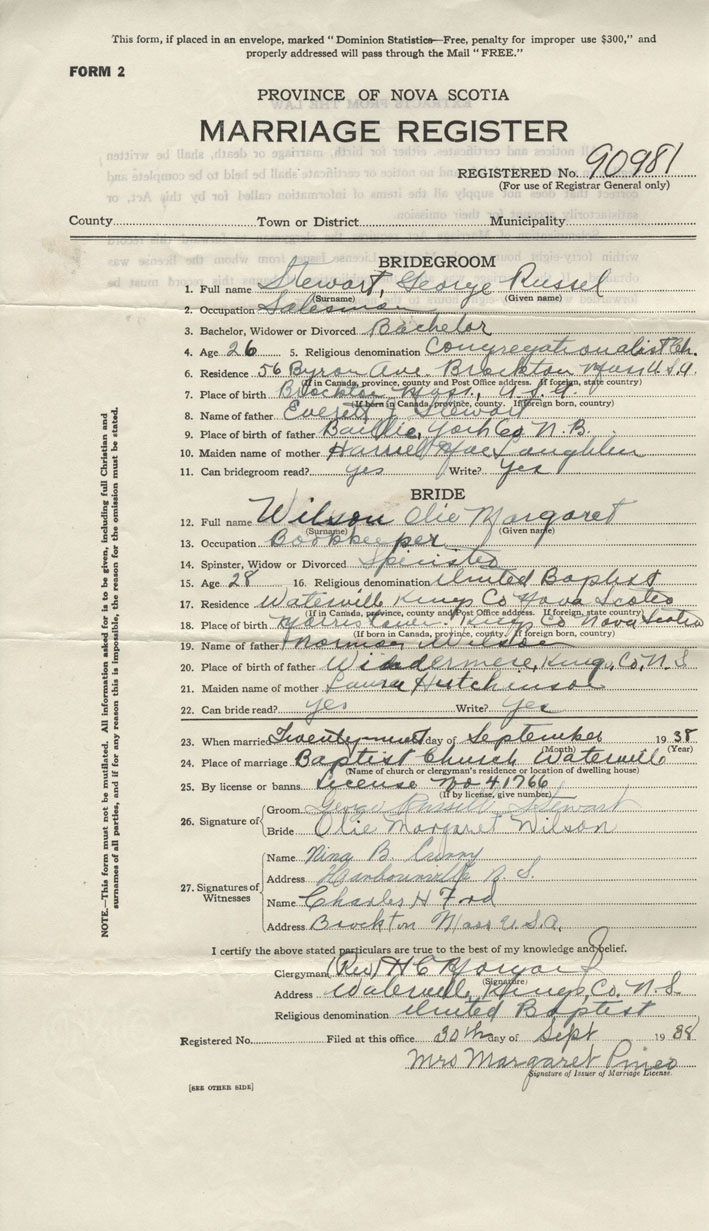 This form, if placed in an envelope, marked "Dominion Statistics—Free, penalty for improper use $300," and
properly addressed will pass through the Mail "FREE."
FORM 2
PROVINCE OF NOVA SCOTIA
MARRIAGE REGISTER
REGISTERED No. 90981
(For use of Registrar General only)
County Town or District Municipality
BRIDEGROOM
1. Full name Stewart, George Russel
(Surname) (Given name)
2. Occupation Salesman
3. Bachelor, Widower or Divorced Bachelor
4. Age 26 5. Religious denomination Congregationalist Ch.
6. Residence 56 Byron Ave. Brockton Mass U.S.A.
(If in Canada, province, county and Post Office address. If foreign, state country)
7. Place of birth Brockton Mass, U.S.A.
(If born in Canada, province, county. If foreign born, country)
8. Name of father Everett Stewart
9. Place of birth of father Baillie, York Co N.B.
10. Maiden name of mother Harriet MacLaughlin
11. Can bridegroom read? yes Write? yes
BRIDE
12. Full name Wilson Olie Margaret
(Surname) (Given name)
13. Occupation Bookkeeper
14. Spinster, Widow or Divorced Spinster
15. Age 28 16. Religious denomination United Baptist
17. Residence Waterville Kings Co Nova Scotia
(If in Canada, province, county and Post Office address. If foreign, state country)
18. Place of birth Kings Co Nova Scotia
(If born in Canada, province, county. If foreign born, country)
19. Name of father Wilson
20. Place of birth of father Windermere, Kings, Co, N.S
21. Maiden name of mother Laura Hutchinson
22. Can bride read? yes Write? yes
23. When married day of September 1938
(Month) (Year)
24. Place of marriage Baptist Church Waterville
(Name of church or clergyman's residence or location of dwelling house)
25. By license or banns License No 41766
(If by license, give number)
26. Signature of
Groom George Russell Stewart
Bride Olie Margaret Wilson
27. Signatures of Witnesses
Name Nina B
Address Harbourville N.S.
Name Charles H Ford
Address Brockton Mass U.S.A.
I certify the above stated particulars are true to the best of my knowledge and belief.
Clergyman (Rev) H C Morgan
(Signature)
Address Waterville, Kings, Co. N.S
Religious denomination United Baptist
Registered No. Filed at this office 30th day of Sept 1938
Mrs Margaret Pineo
Signature of Issuer of Marriage License.
[SEE OTHER SIDE]
NOTE.—This form must not be mutilated. All information asked for is to be given, including full Christian and
surnames of all parties, and if for any reason this is impossible, the reason for the omission must be stated.